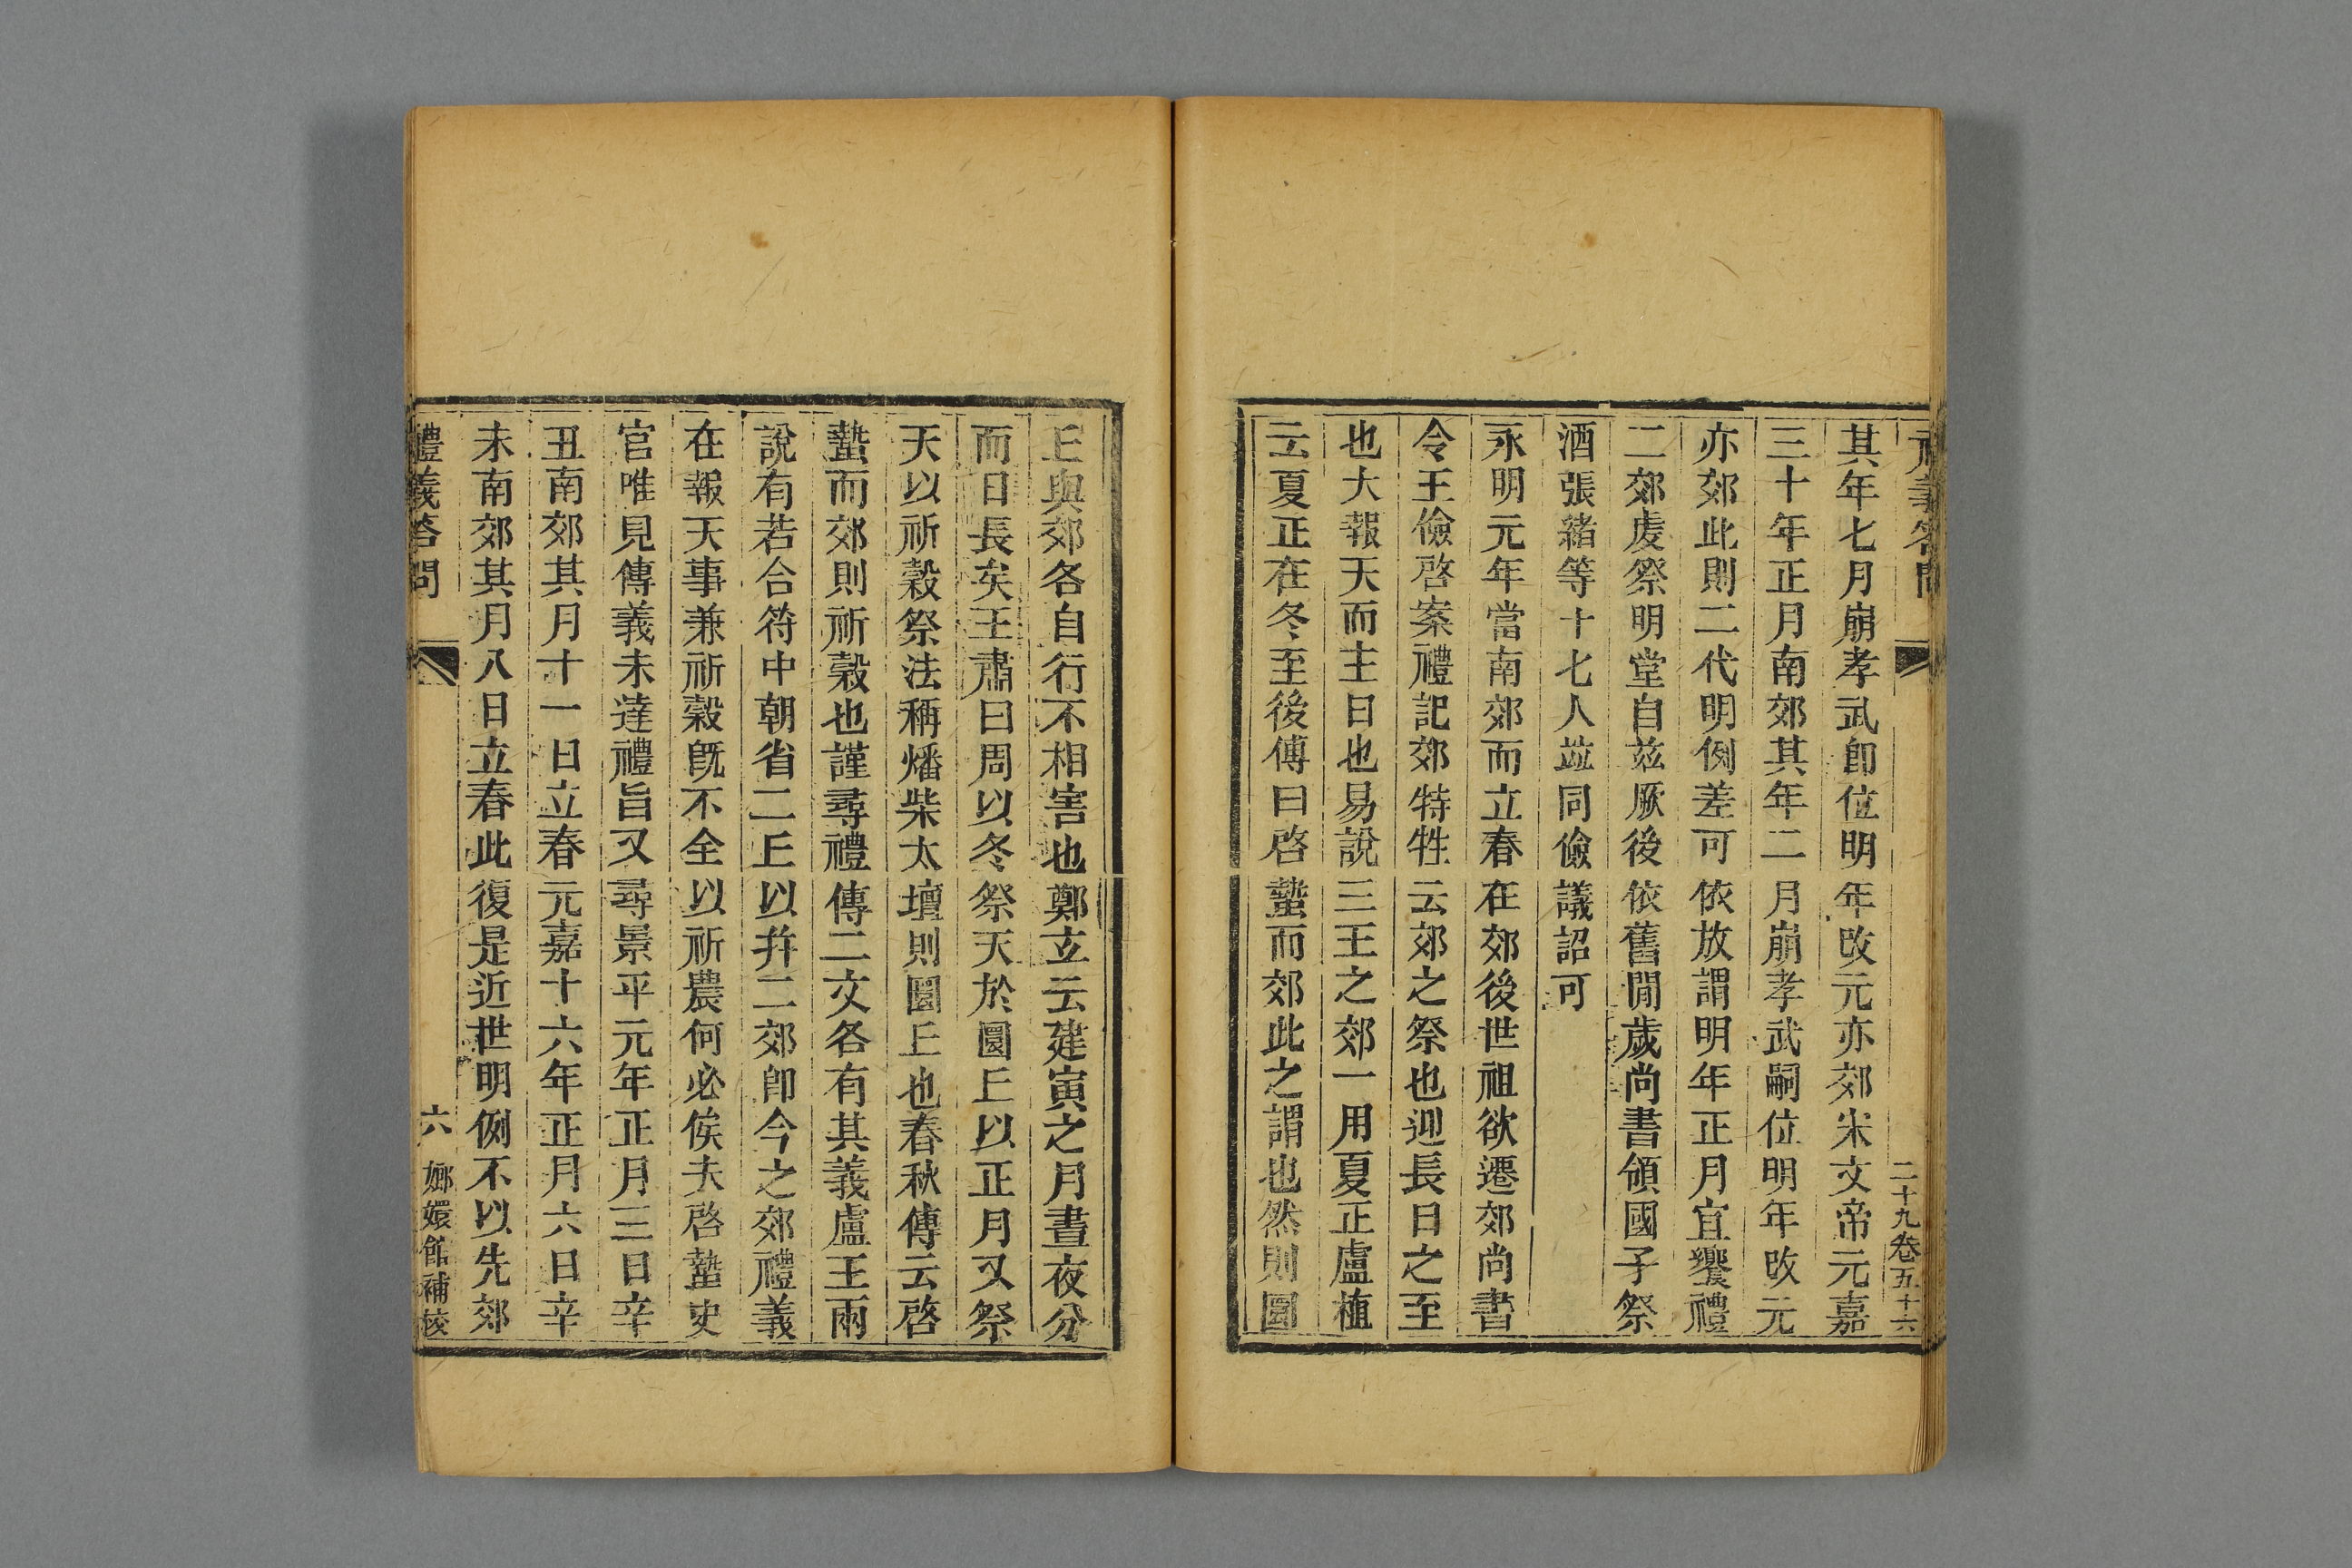 禮義答問
二十九卷五十六
其年七月崩孝武卽位明年改元亦郊宋文帝元嘉
三十年正月南郊其年二月崩孝武嗣位明年改元
亦郊此則二代明例差可依放謂明年正月宜饗禮
二郊虔祭明堂自茲厥後依舊閒歲尚書領國子祭
酒張緒等十七人竝同儉議詔可
永明元年當南郊而立春在郊後世祖欲遷郊尚書
令王儉啓案禮記郊特牲云郊之祭也迎長日之至
也大報天而主日也易說三王之郊一用夏正盧植
云夏正在冬至後傅曰啓蟄而郊此之謂也然則圜
𠀌與郊各自行不相害也鄭立云建寅之月晝夜分
而日長矣王肅曰周以冬祭天於圜𠀌以正月又祭
天以祈穀祭法稱燔柴太壇則圜𠀌也春秋傳云啓
蟄而郊則祈穀也謹尋禮傳二文各有其義盧王兩
說有若合符中朝省二𠀌以幷二郊卽今之郊禮義
在報天事兼祈穀旣不全以祈農何必俟夫啓蟄史
官唯見傳義未達禮旨又尋景平元年正月三日辛
丑南郊其月十一日立春元嘉十六年正月六日辛
未南郊其月八日立春此復是近世明例不以先郊
禮義答問
六
嫏嬛館補校